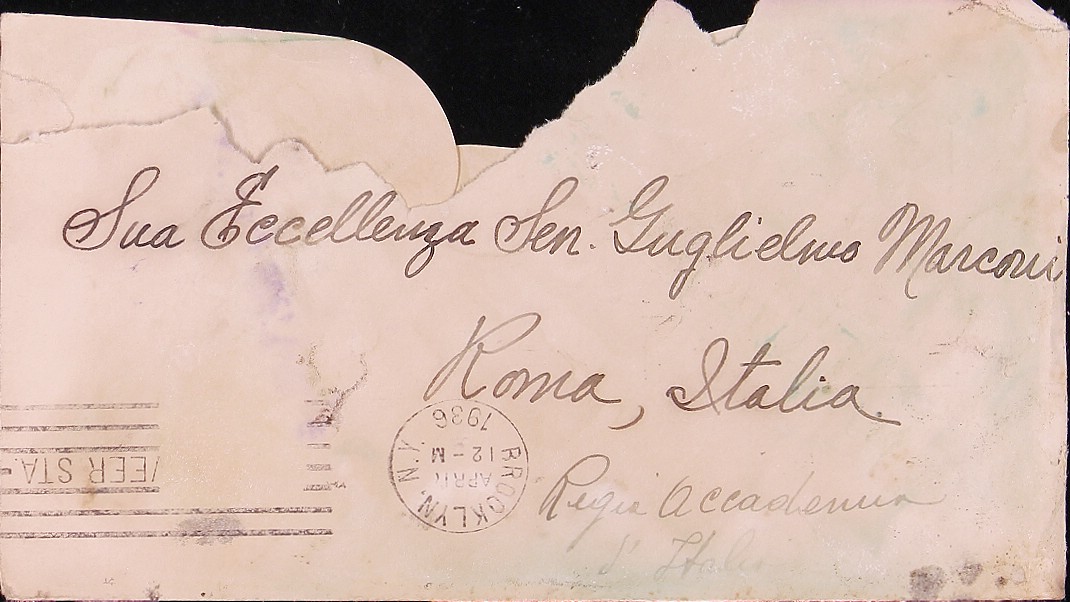 Sua Eccellenza Sen. Guglielmo Marconi
Roma, Italia.
Regia Accademia
d'Italia
BROOKLYN. N.Y.
APR
12-M
1936
VEER STA.-